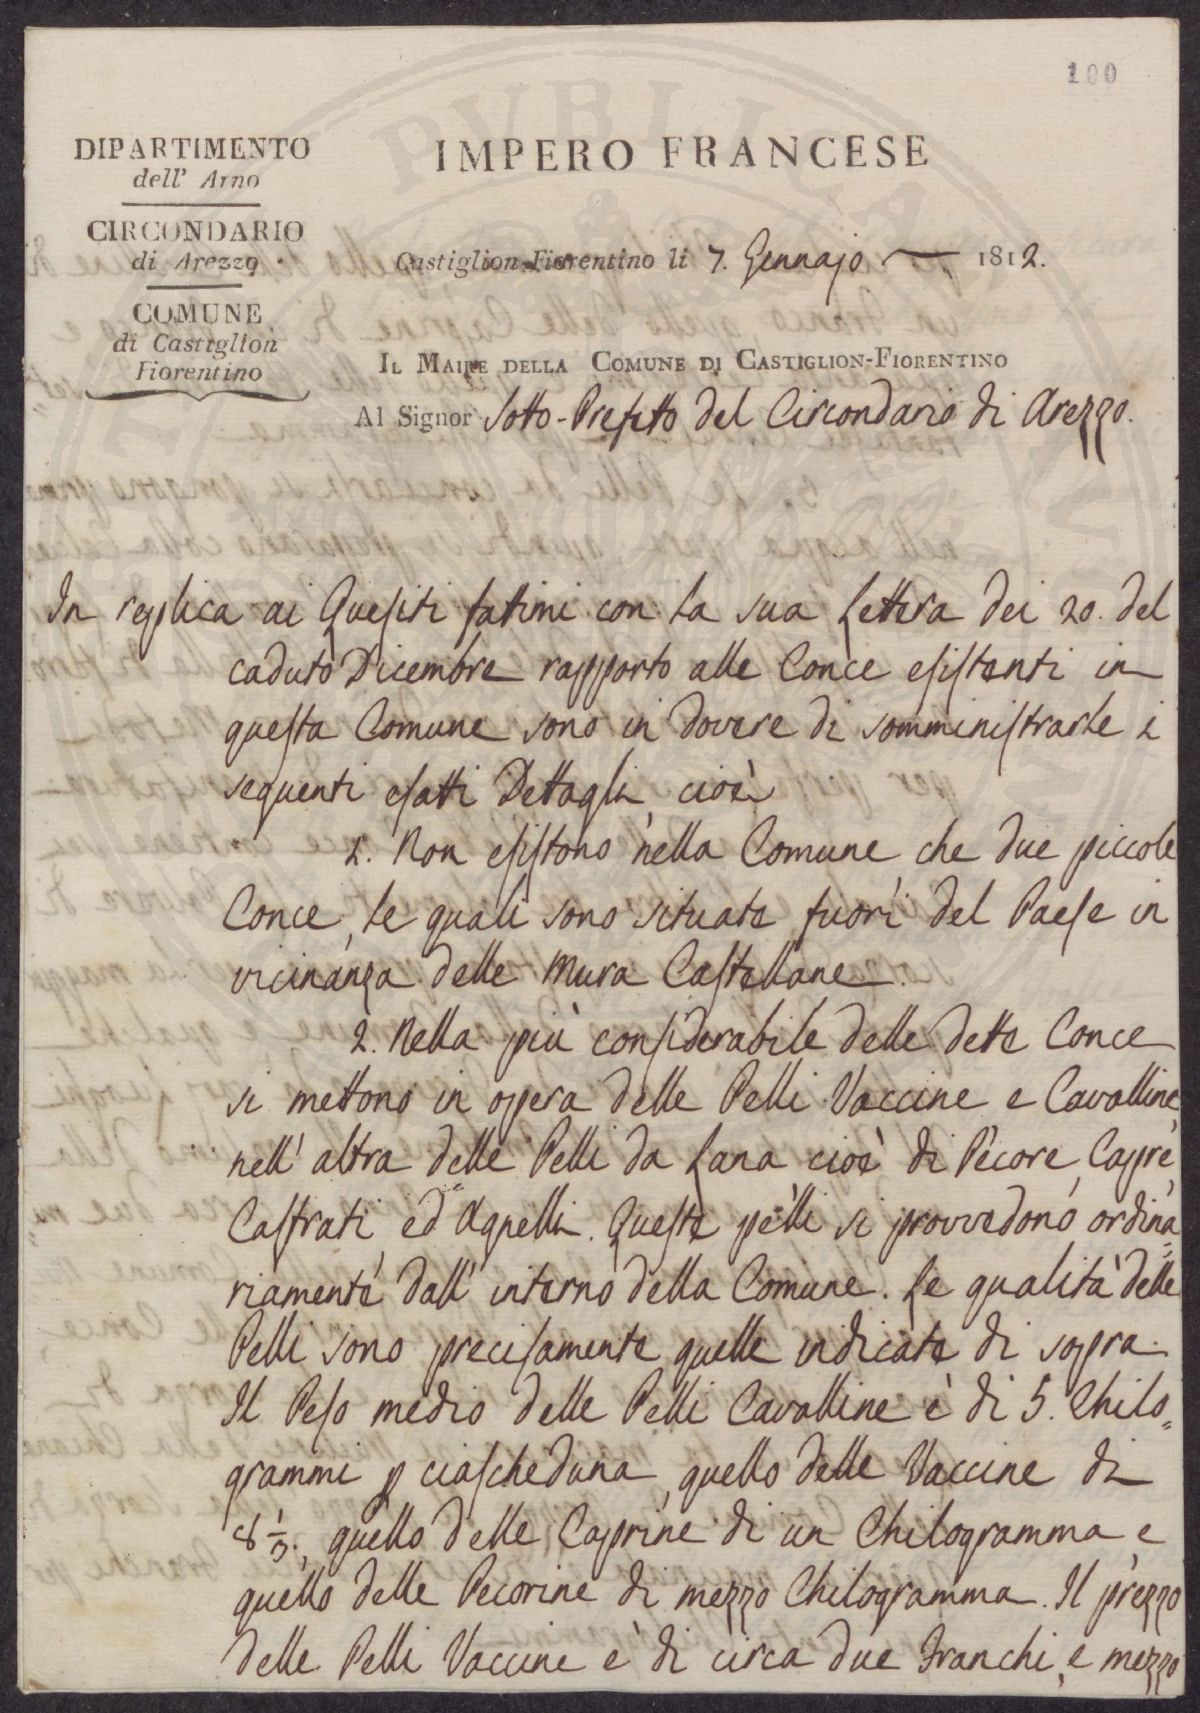 100
DIPARTIMENTO
dell' Arno
CIRCONDARIO
di Arezzo
COMUNE
di Castiglion
Fiorentino
IMPERO FRANCESE
Castiglion-Fiorentino li 7. Gennajo 1812.
IL MAIRE DELLA COMUNE DI CASTIGLION-FIORENTINO
Al Signor Sotto-Prefetto del Circondario di Arezzo.
In replica ai Quesiti fattimi con la sua Lettera dei 20. del
caduto Dicembre rapporto alle Conce esistenti in
questa Comune sono in dovere di somministrarLe i
seguenti esatti Dettagli, cioè
1. Non esistono nella Comune che due piccole
Conce, le quali sono situate fuori del Paese in
vicinanza delle Mura Castellane.
2. Nella più considerabile delle dette Conce
si mettono in opera delle Pelli Vaccine e Cavalline
nell' altra delle Pelli da Lana cioè di Pecore, Capre,
Castrati ed Agnelli. Queste pelli si provvedono ordina=
riamente dall' interno della Comune. Le qualità delle
Pelli sono precisamente quelle indicate di sopra.
Il Peso medio delle Pelli Cavalline è di 5. Chilo=
grammi p ciascheduna, quello delle Vaccine di
8 1/3., quello delle Caprine di un Chilogramma e
quello delle Pecorine di mezzo Chilogramma. Il prezzo
delle Pelli Vaccine è di circa due Franchi, e mezzo